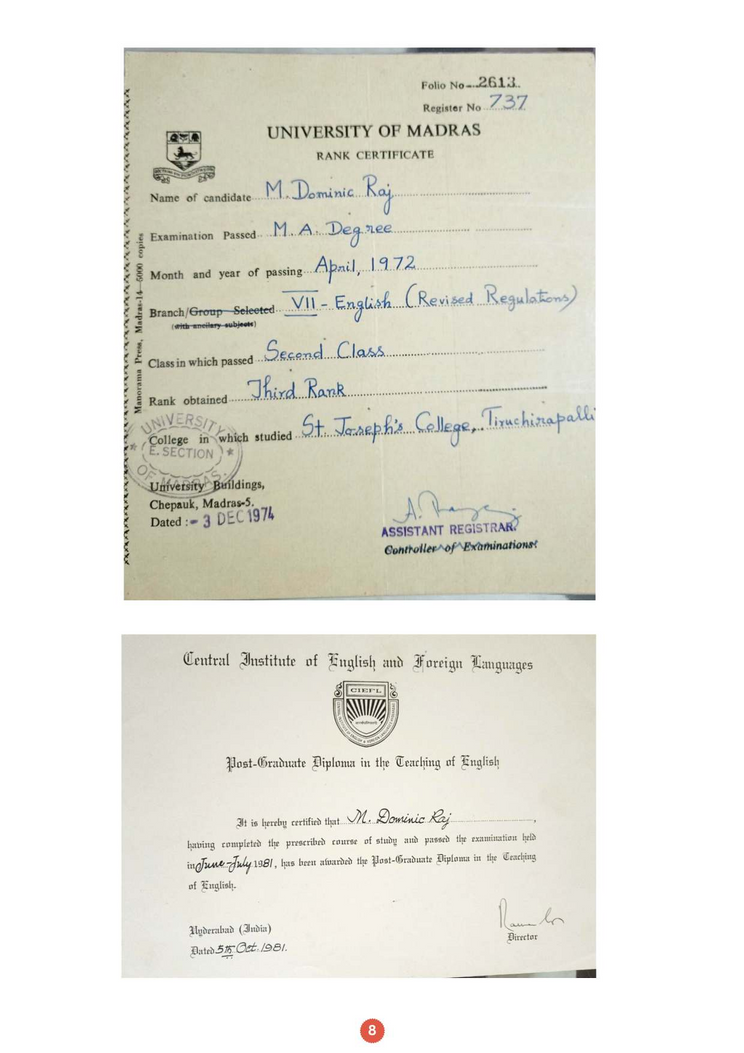 Folio No 2613
Register No 737
UNIVERSITY OF MADRAS
RANK CERTIFICATE
Name of candidate M. Dominic Raj
Examination Passed M. A. Degree
Month and year of passing April, 1972
Branch/Group Selected VII - English (Revised Regulations)
(with ancilary subjects)
Class in which passed Second Class
Rank obtained Third Rank
College in which studied St Joseph's College, Tiruchirapalli
UNIVERSITY
E. SECTION
OF MADRAS
University Buildings,
Chepauk, Madras-5.
Dated :- 3 DEC 1974
ASSISTANT REGISTRAR.
Controller of Examinations
Manorama Press, Madras-14—5000 copies
Central Institute of English and Foreign Languages
CIEFL
Post-Graduate Diploma in the Teaching of English
It is hereby certified that M. Dominic Raj,
having completed the prescribed course of study and passed the examination held
in June-July 1981, has been awarded the Post-Graduate Diploma in the Teaching
of English.
Hyderabad (India)
Director
Dated 5th Oct. 1981.
8